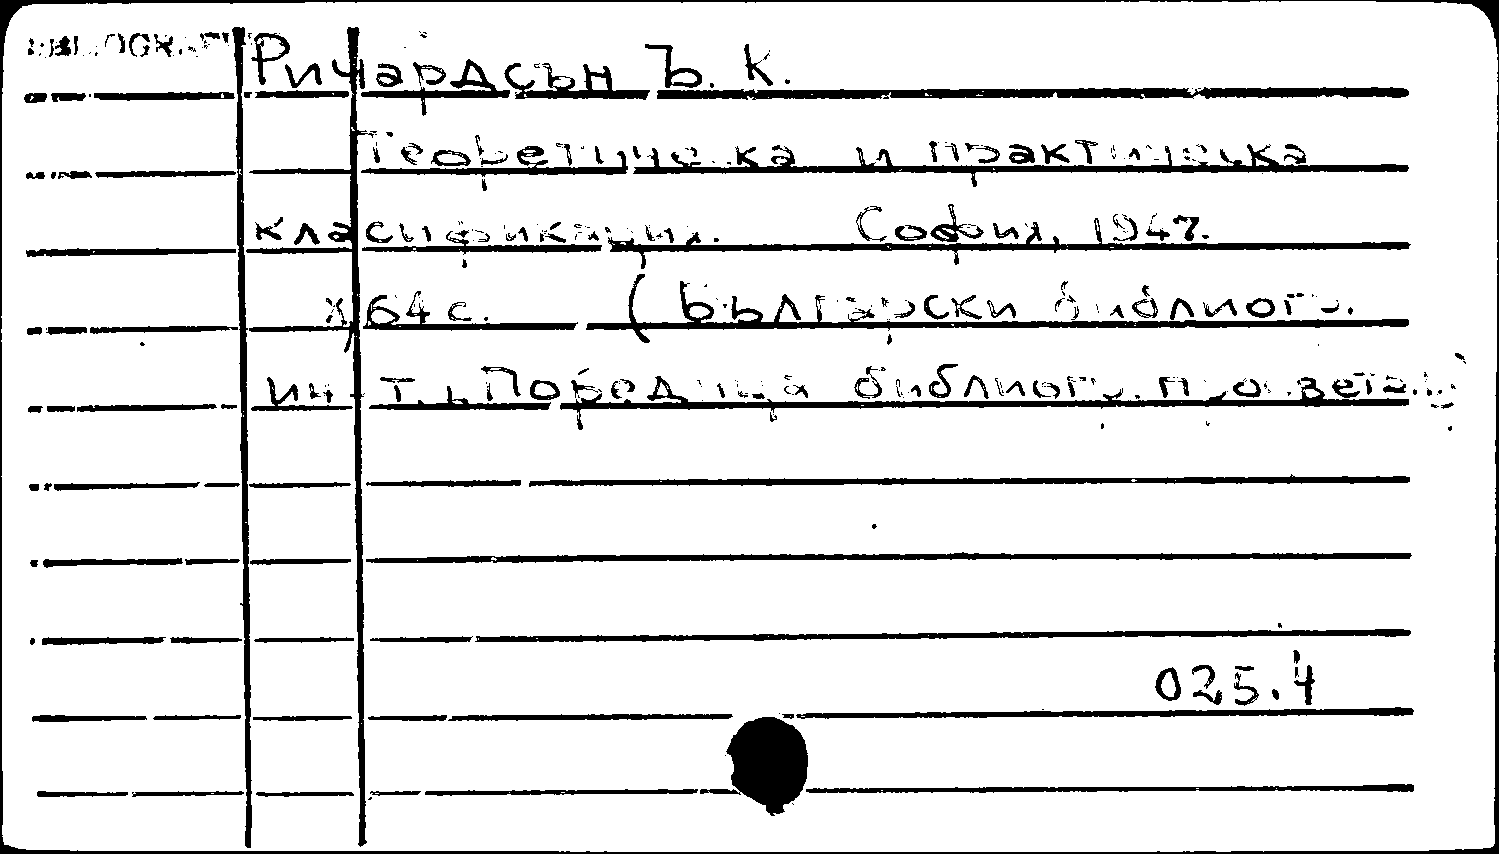 Ричардсън Ъ. К.
Теоретическа и практическа
класификация. София, 1947.
64 с. (Български библиогр.
ин-т. Поредица библиогр. просвета.
025.4